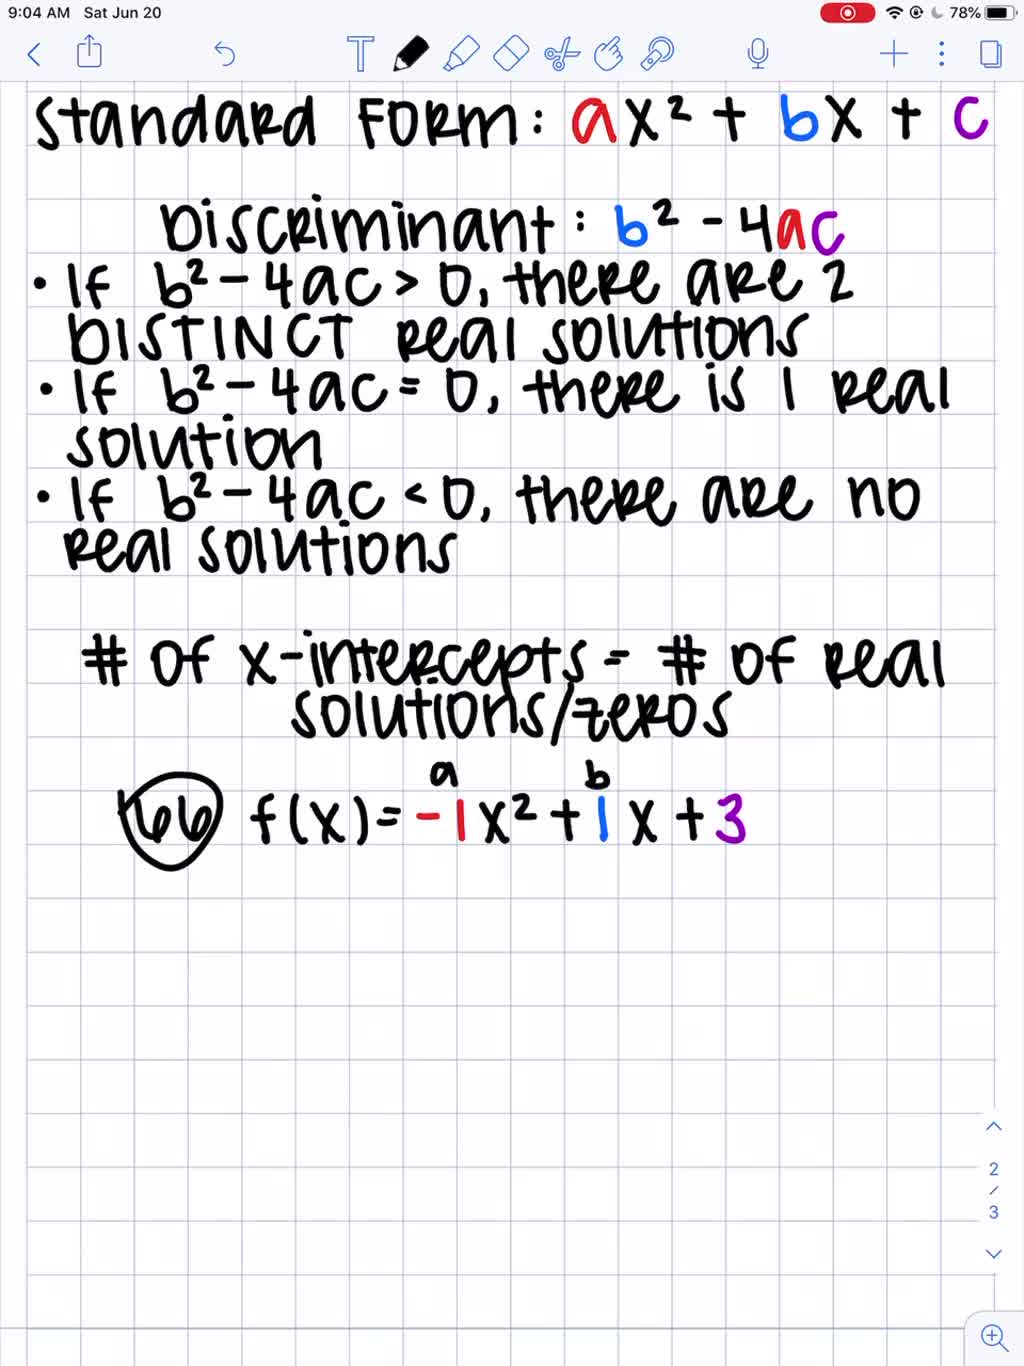 9:04 AM Sat Jun 20 78%
T
Standard Form: ax² + bx + c
Discriminant: b² - 4ac
• If b² - 4ac > 0, there are 2
DISTINCT real solutions
• If b² - 4ac = 0, there is 1 real
solution
• If b² - 4ac < 0, there are no
real solutions
# of x-intercepts = # of real
solutions/zeros
a b
66 f(x) = -1x² + 1x + 3
2
/
3